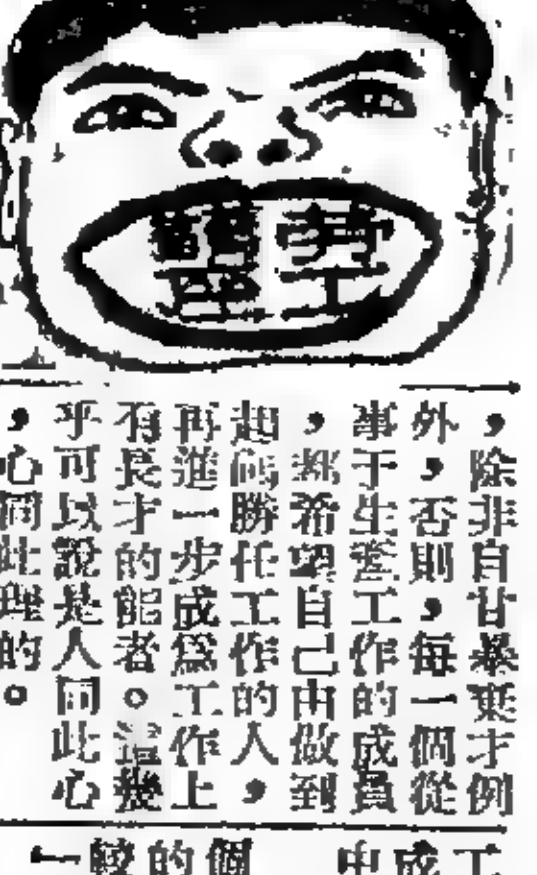 勞工
講座
，除非自甘暴棄才例
外，否則，每一個從
事于生產工作的成員
，都希望自己由做到
起碼勝任工作的人，
再進一步成爲工作上
有長才的能者。這幾
乎可以說是人同此心
，心同此理的。
工
成
中
個
的
較
一